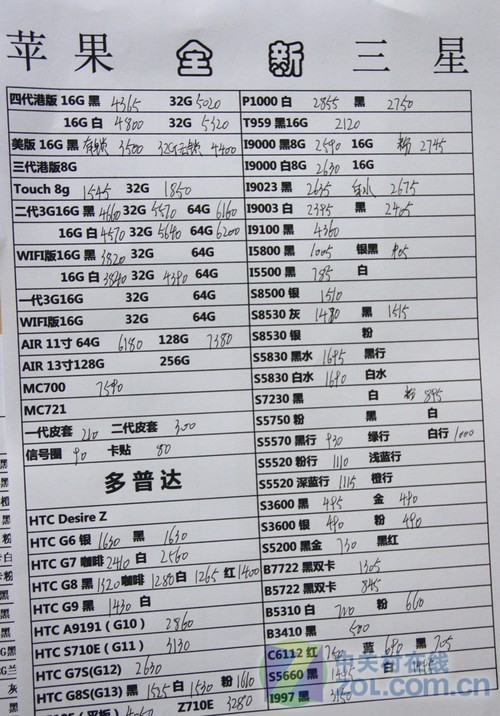 苹果 全新 三星
四代港版 16G 黑 4365 32G 5020
16G 白 4800 32G 5320
美版 16G 黑 有锁 3500 32G 无锁 4400
三代港版8G
Touch 8g 1545 32G 1850
二代3G16G 黑 4660 32G 5570 64G 6160
16G 白 4570 32G 5640 64G 6200
WIFI版16G 黑 3820 32G 64G
16G 白 3840 32G 4390 64G
一代3G16G 32G 64G
WIFI版16G 32G 64G
AIR 11寸 64G 6180 128G 7380
AIR 13寸128G 256G
MC700 7590
MC721
一代皮套 210 二代皮套 300
信号圈 90 卡贴 80
多普达
HTC Desire Z
HTC G6 银 1630 黑 1630
HTC G7 咖啡 2410 白 2560
HTC G8 黑 1320 咖啡 1280 白 1265 红 1400
HTC G9 黑 1430 白
HTC A9191 (G10) 2860
HTC S710E (G11) 3130
HTC G7S(G12) 2630
HTC G8S(G13) 黑 1525 白 1530 粉 1610
Z710E 3280
P1000 白 2855 黑 2750
T959 黑16G 2120
I9000 黑8G 2590 16G 粉 2745
I9000 白8G 2630 16G
I9023 黑 2635 白水 2675
I9003 白 2385 黑 2405
I9100 黑 4360
I5800 黑 1005 银黑 905
I5500 黑 785 白
S8500 银 1510
S8530 灰 1480 黑 1515
S8530 银 粉
S5830 黑水 1695 黑行
S5830 白水 1690 白水
S7230 黑 白 粉 895
S5750 粉 黑 白
S5570 黑行 930 绿行 白行 1000
S5520 粉行 1110 浅蓝行
S5520 深蓝行 1115 橙行
S3600 黑 495 金 490
S3600 银 490 粉 490
S5200 黑金 730 黑红
B7722 黑双卡 1305
B5722 黑双卡 845
B5310 白 700 粉 660
B3410 黑 500
C6112 红 750 蓝 690 黑 705
S5660 黑 白
I997 黑 3150
中关村在线
ZOL.com.cn